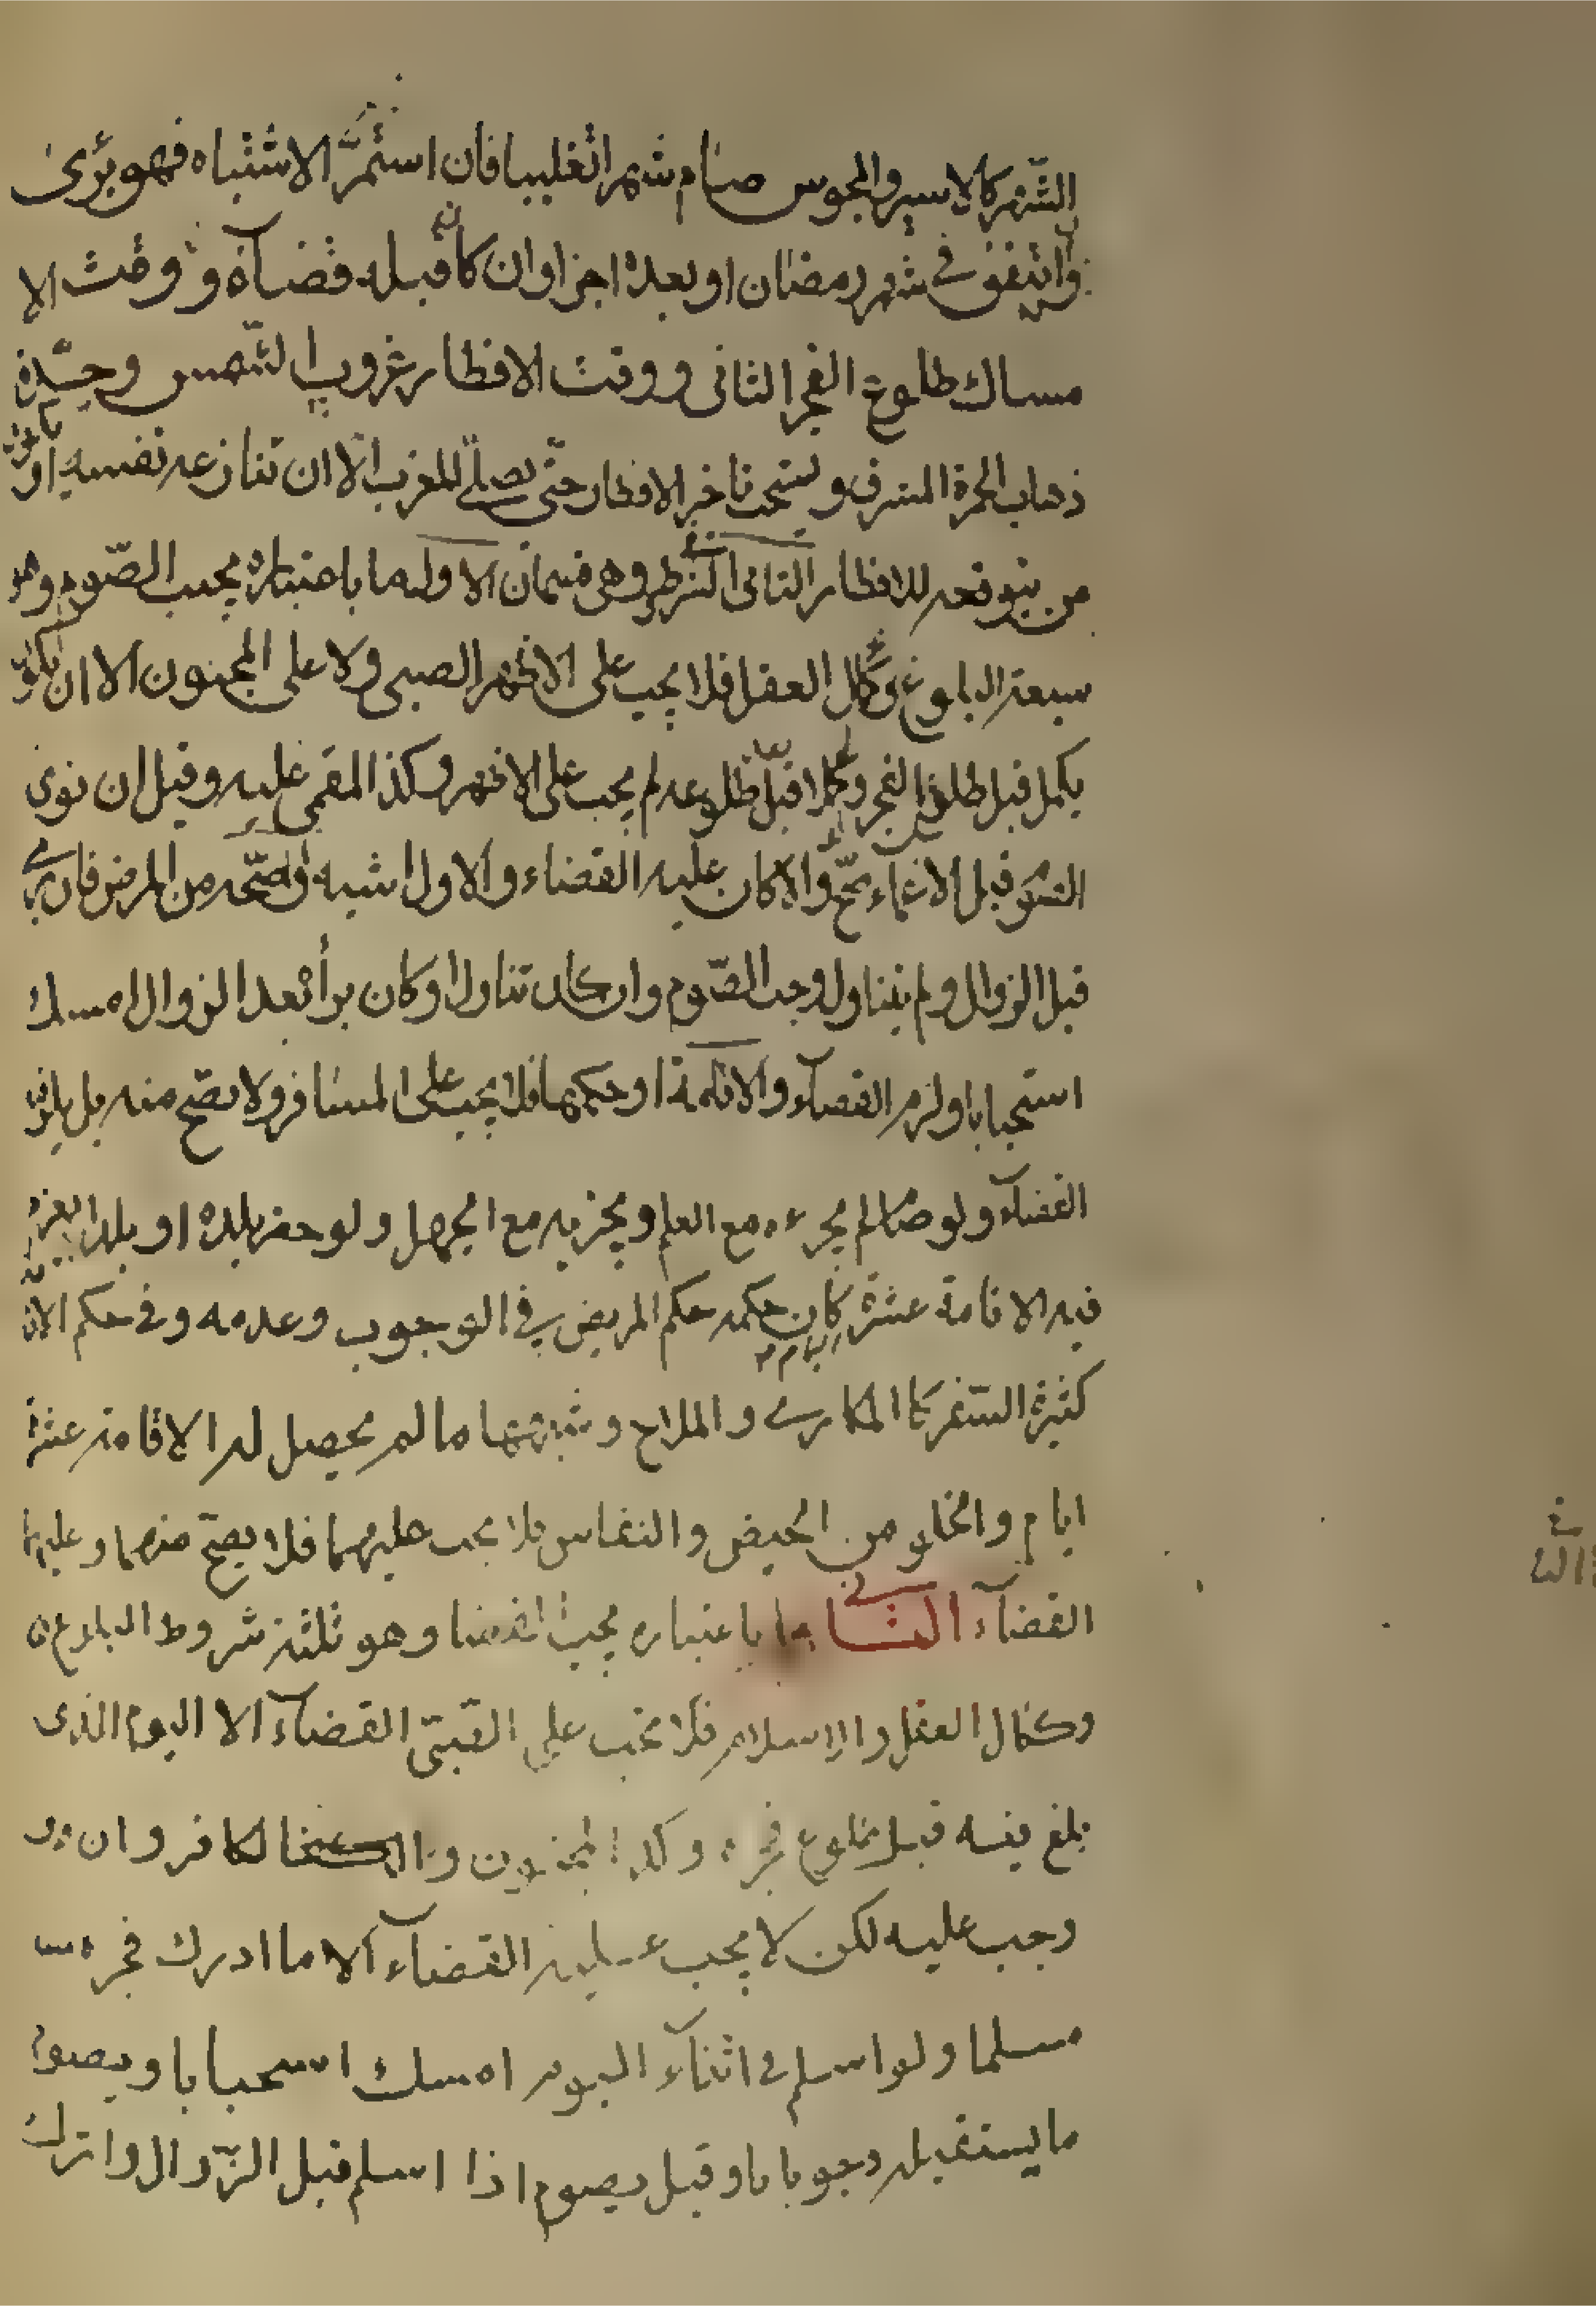 الشهر كالاسير والمحبوس صام شهرا تغليبا فان استمر الاشتباه فهو برئ
وان اتفق في شهر رمضان او بعده اجزا وان كان قبله قضاه ووقت الا
مساك طلوع الفجر الثاني ووقت الافطار غروب الشمس وحده
ذهاب الحمرة المشرق ويستحب تاخير الافطار حتى يصلي المغرب الا ان تنازعه نفسه او يكون
من يتوقعه للافطار الثاني الشرط وهي قسمان الاول ما باعتباره يجب الصوم وهو
سبعة البلوغ وكمال العقل فلا يجب على الصبي ولا على المجنون الا ان يكون
يكمل قبل طلوع الفجر ولو كملا قبل طلوعه لم يجب على الاظهر وكذا المغمى عليه وقيل ان نوى
الصوم قبل الاغماء صح والا كان عليه القضاء والاول اشبه والصحه من المرض فان برئ
قبل الزوال ولم يتناول وجب الصوم وان كان تناول او كان برأه بعد الزوال امسك
استحبابا ولزم القضاء والاقامة او حكمها فلا يجب على المسافر ولا يصح منه بل يلزم
القضاء ولو صام لم يجزءه مع العلم ويجزيه مع الجهل ولو حضر بلده او بلدا يعزم
فيه الاقامة عشرة ايام كان حكمه حكم المريض في الوجوب وعدمه وفي حكم الاقامة
كثيرة السفر كا المكاري والملاح وشبهها ما لم يحصل له الاقامة عشرة
ايام والخلو من الحيض والنفاس فلا يجب عليهما فلا يصح منهما وعليهما
القضاء الثاني ما باعتباره يجب القضا وهو ثلثة شروط البلوغ
وكمال العقل والاسلام فلا يجب على الصبي القضاء الا اليوم الذى
بلغ فيه قبل طلوع فجره وكذا المجنون والكافر وان
وجب عليه لكن لا يجب عليه القضاء الا ما ادرك فجره
مسلما ولو اسلم في اثناء اليوم امسك استحبابا ويصوم
ما يستقبله وجوبا وقيل يصوم اذا اسلم قبل الزوال وان ترك